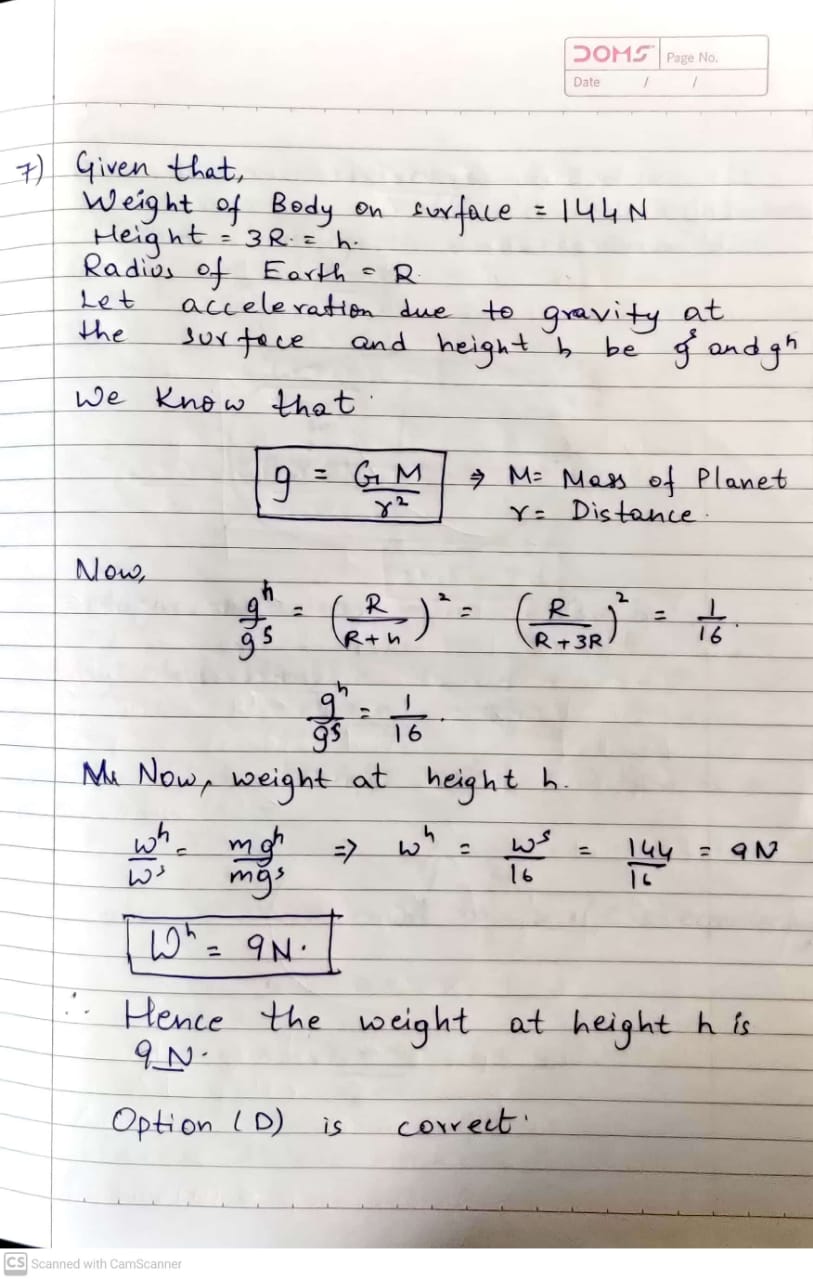 DOMS Page No.
Date / /
7) Given that,
Weight of Body on surface = 144 N
Height = 3R = h.
Radius of Earth = R.
Let acceleration due to gravity at
the surface and height h be gˢ and gʰ
We know that
g = GM / r² ⇒ M = Mass of Planet
r = Distance.
Now,
gʰ/gˢ = (R/(R+h))² = (R/(R+3R))² = 1/16.
gʰ/gˢ = 1/16.
Now, weight at height h.
wʰ/wˢ = mgʰ/mgˢ => wʰ = wˢ/16 = 144/16 = 9N
Wʰ = 9N.
∴ Hence the weight at height h is
9 N.
Option (D) is correct.
CS Scanned with CamScanner